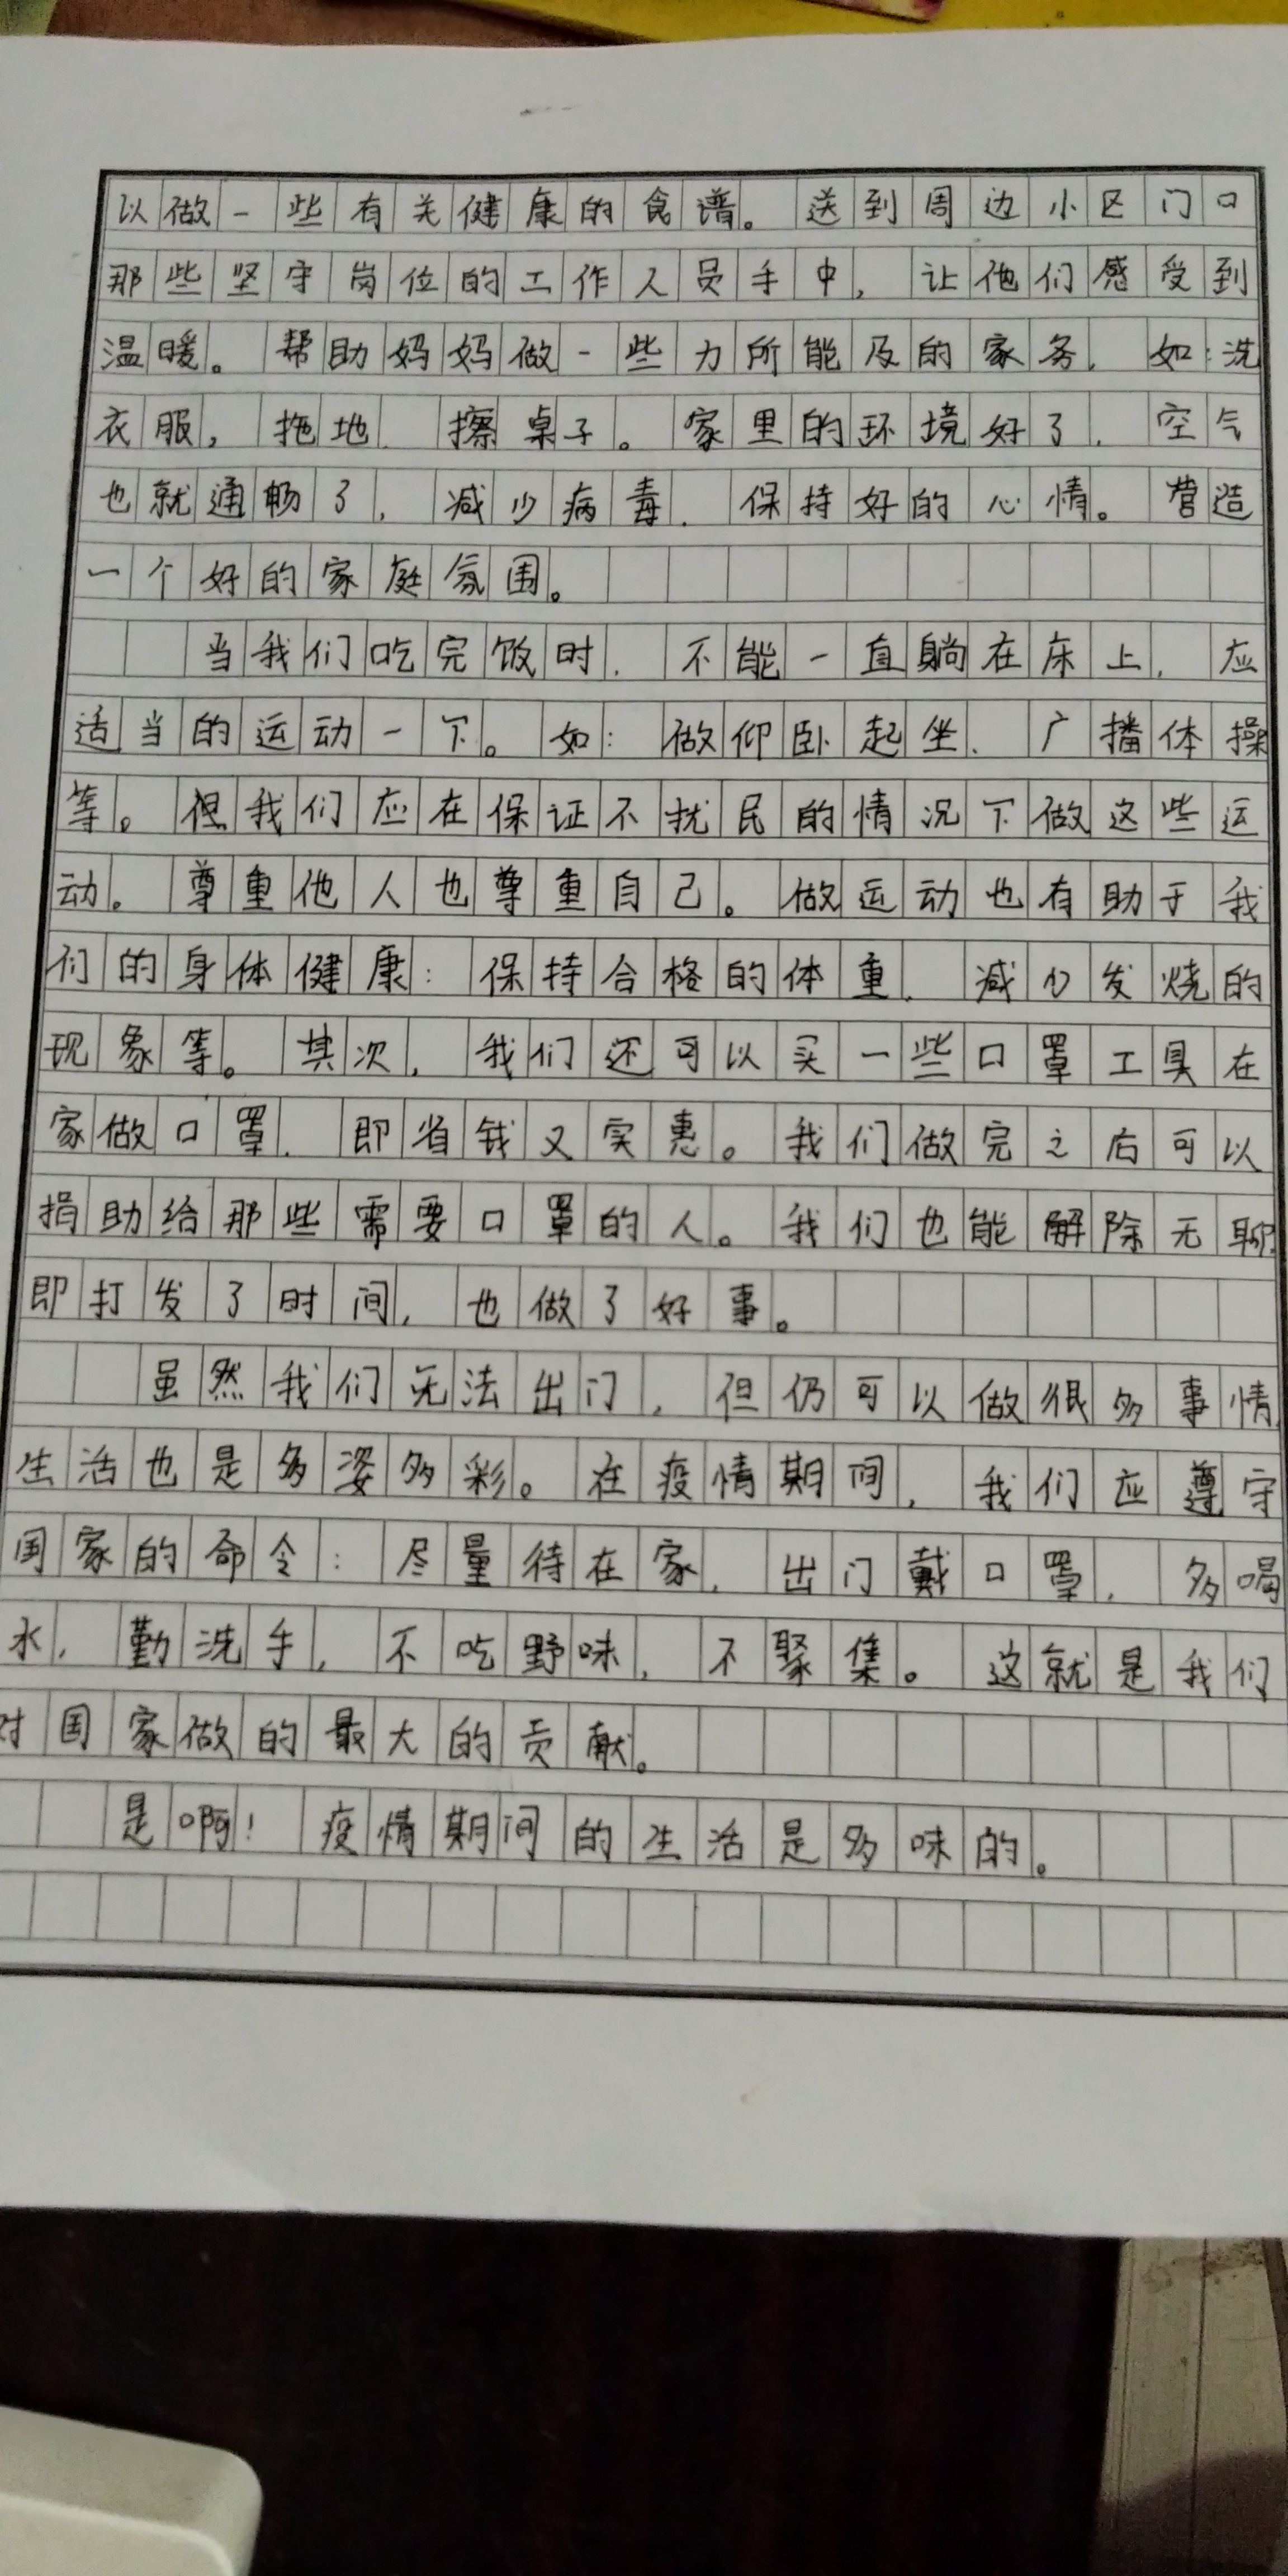 以做一些有关健康的食谱。送到周边小区门口
那些坚守岗位的工作人员手中，让他们感受到
温暖。帮助妈妈做一些力所能及的家务，如：洗
衣服，拖地、擦桌子。家里的环境好了，空气
也就通畅了，减少病毒，保持好的心情。营造
一个好的家庭氛围。
当我们吃完饭时，不能一直躺在床上，应
适当的运动一下。如：做仰卧起坐、广播体操
等。但我们应在保证不扰民的情况下做这些运
动。尊重他人也尊重自己。做运动也有助于我
们的身体健康：保持合格的体重、减少发烧的
现象等。其次，我们还可以买一些口罩工具在
家做口罩，即省钱又实惠。我们做完之后可以
捐助给那些需要口罩的人。我们也能解除无聊
即打发了时间，也做了好事。
虽然我们无法出门，但仍可以做很多事情，
生活也是多姿多彩。在疫情期间，我们应遵守
国家的命令：尽量待在家，出门戴口罩，多喝
水，勤洗手，不吃野味，不聚集。这就是我们
对国家做的最大的贡献。
是啊！疫情期间的生活是多味的。